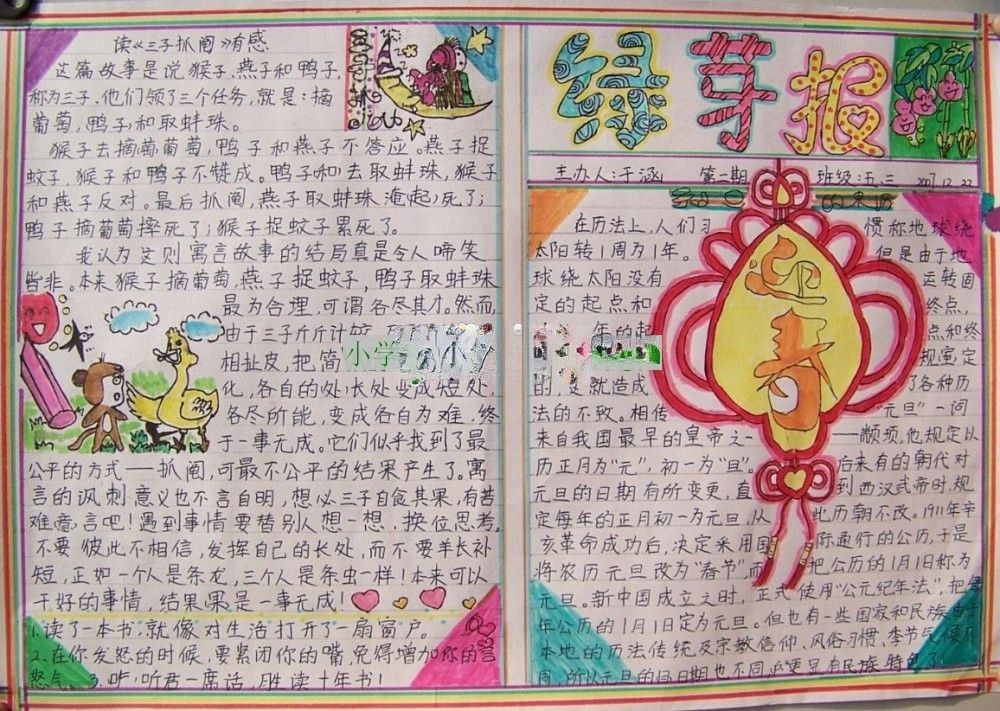 读《三子抓阄》有感
这篇故事是说猴子、燕子和鸭子,
称为三子。他们领了三个任务,就是:摘
葡萄,鸭子和取蚌珠。
猴子去摘萄葡萄,鸭子和燕子不答应。燕子捉
蚊子,猴子和鸭子不赞成。鸭子和去取蚌珠,猴子
和燕子反对。最后抓阄,燕子取蚌珠淹起死了;
鸭子摘葡萄摔死了;猴子捉蚊子累死了。
我认为这则寓言故事的结局真是令人啼笑
皆非。本来猴子摘葡萄,燕子捉蚊子,鸭子取蚌珠
最为合理,可谓各尽其才。然而,
由于三子斤斤计
相扯皮,把简
化,各自的处长处变成短处,
各尽所能,变成各自为难,终
于一事无成。它们似乎找到了最
公平的方式——抓阄,可最不公平的结果产生了。寓
言的讽刺意义也不言自明,想必三子自食其果,有苦
难言吧!遇到事情要替别人想一想,换位思考,
不要彼此不相信,发挥自己的长处,而不要羊长补
短,正如一个人是条龙,三个人是条虫一样!本来可以
干好的事情,结果果是一事无成!
1.读了一本书,就像对生活打开了一扇窗户。
2.在你发怒的时候,要紧闭你的嘴,免得增加你的
怒气。3.听君一席话,胜读十年书!
绿芽报
主办人:于涵 第一期 班级:五.三 2007.12.22
迎春
在历法上,人们习惯称地球绕
太阳转1周为1年。但是由于地
球绕太阳没有运转固
定的起点和终点,
年的起点和终
的,这就造成了各种历
法的不致。相传“元旦”一词
来自我国最早的皇帝之一——颛顼,他规定以
历正月为“元”,初一为“旦”。后来有的朝代对
元旦的日期有所变更,直到西汉武帝时,规
定每年的正月初一为元旦,从此历朝不改。1911年辛
亥革命成功后,决定采用国际通行的公历,于是
将农历元旦改为“春节”,而把公历的1月1日称为
元旦。新中国成立之时,正式使用“公元纪年法”,把每
年公历的1月1日定为元旦。但也有一些国家和民族由于
本地的历法传统及宗教信仰、风俗习惯、季节气候不
同,所以元旦的日期也不同,
小学